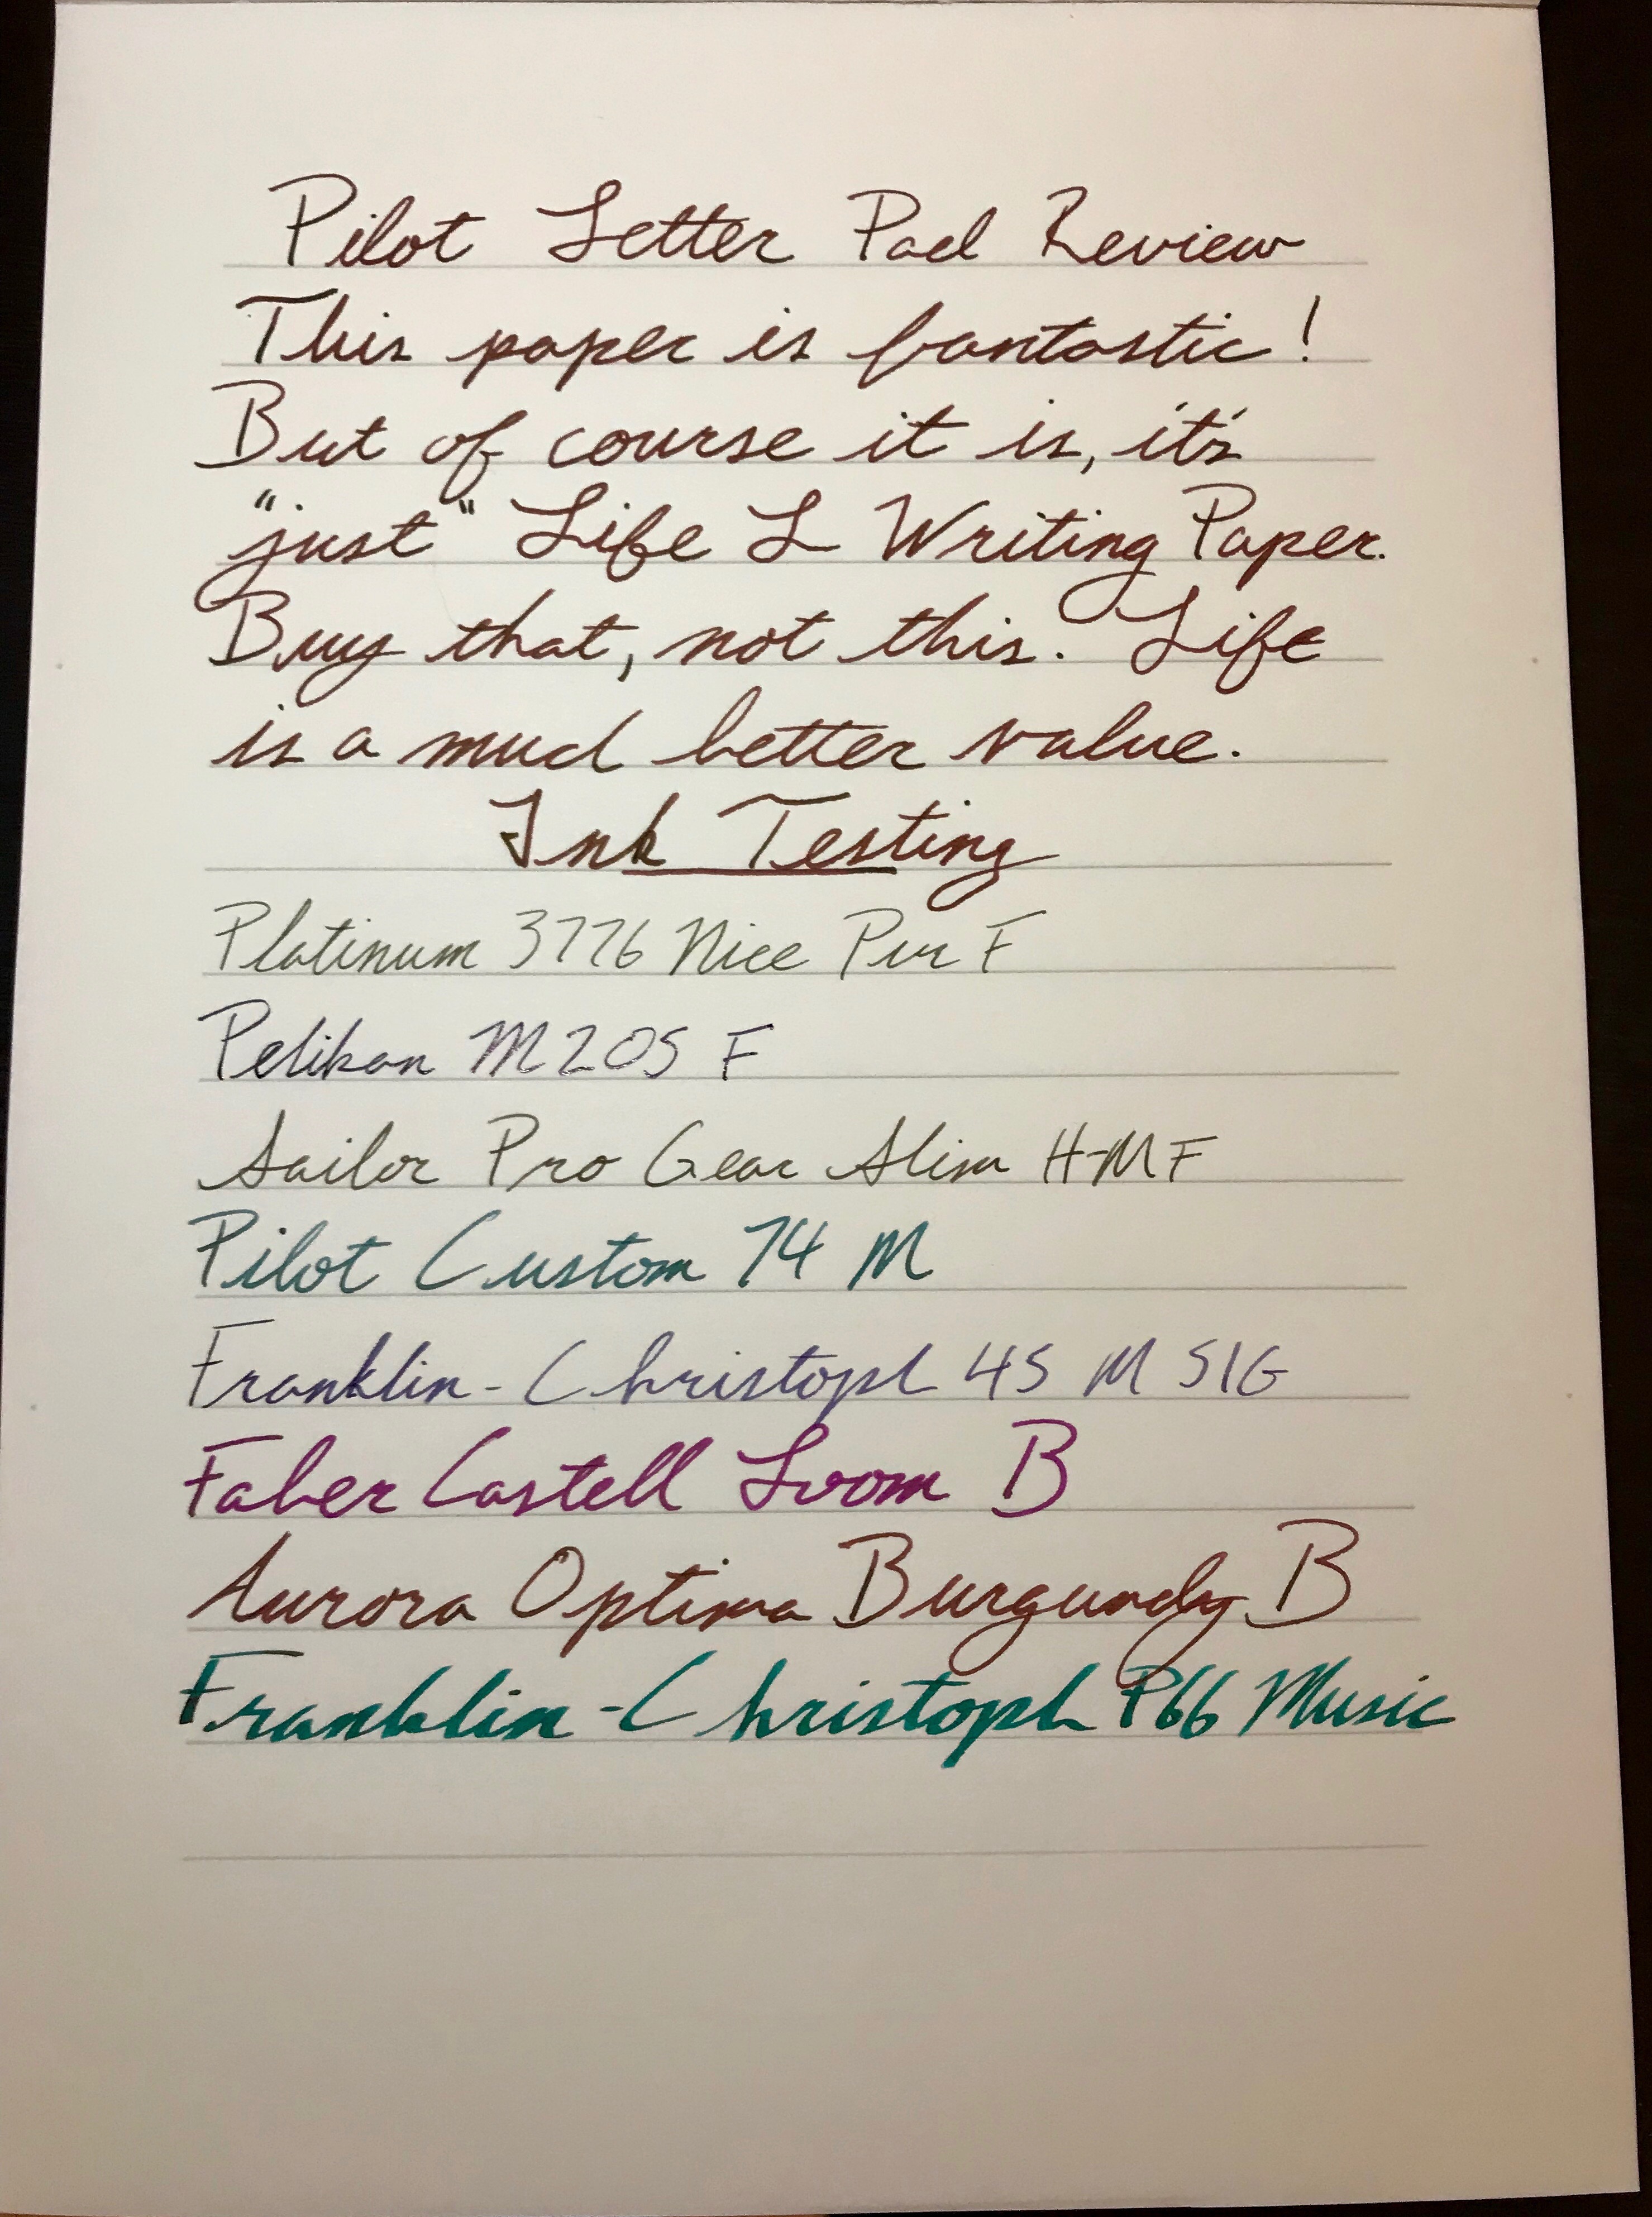 Pilot Letter Pad Review
This paper is fantastic!
But of course it is, it's
"just" Life L Writing Paper.
Buy that, not this. Life
is a much better value.
Ink Testing
Platinum 3776 Nice Pur F
Pelikan M205 F
Sailor Pro Gear Slim H-MF
Pilot Custom 74 M
Franklin-Christoph 45 M SIG
Faber Castell Loom B
Aurora Optima Burgundy B
Franklin-Christoph P66 Music